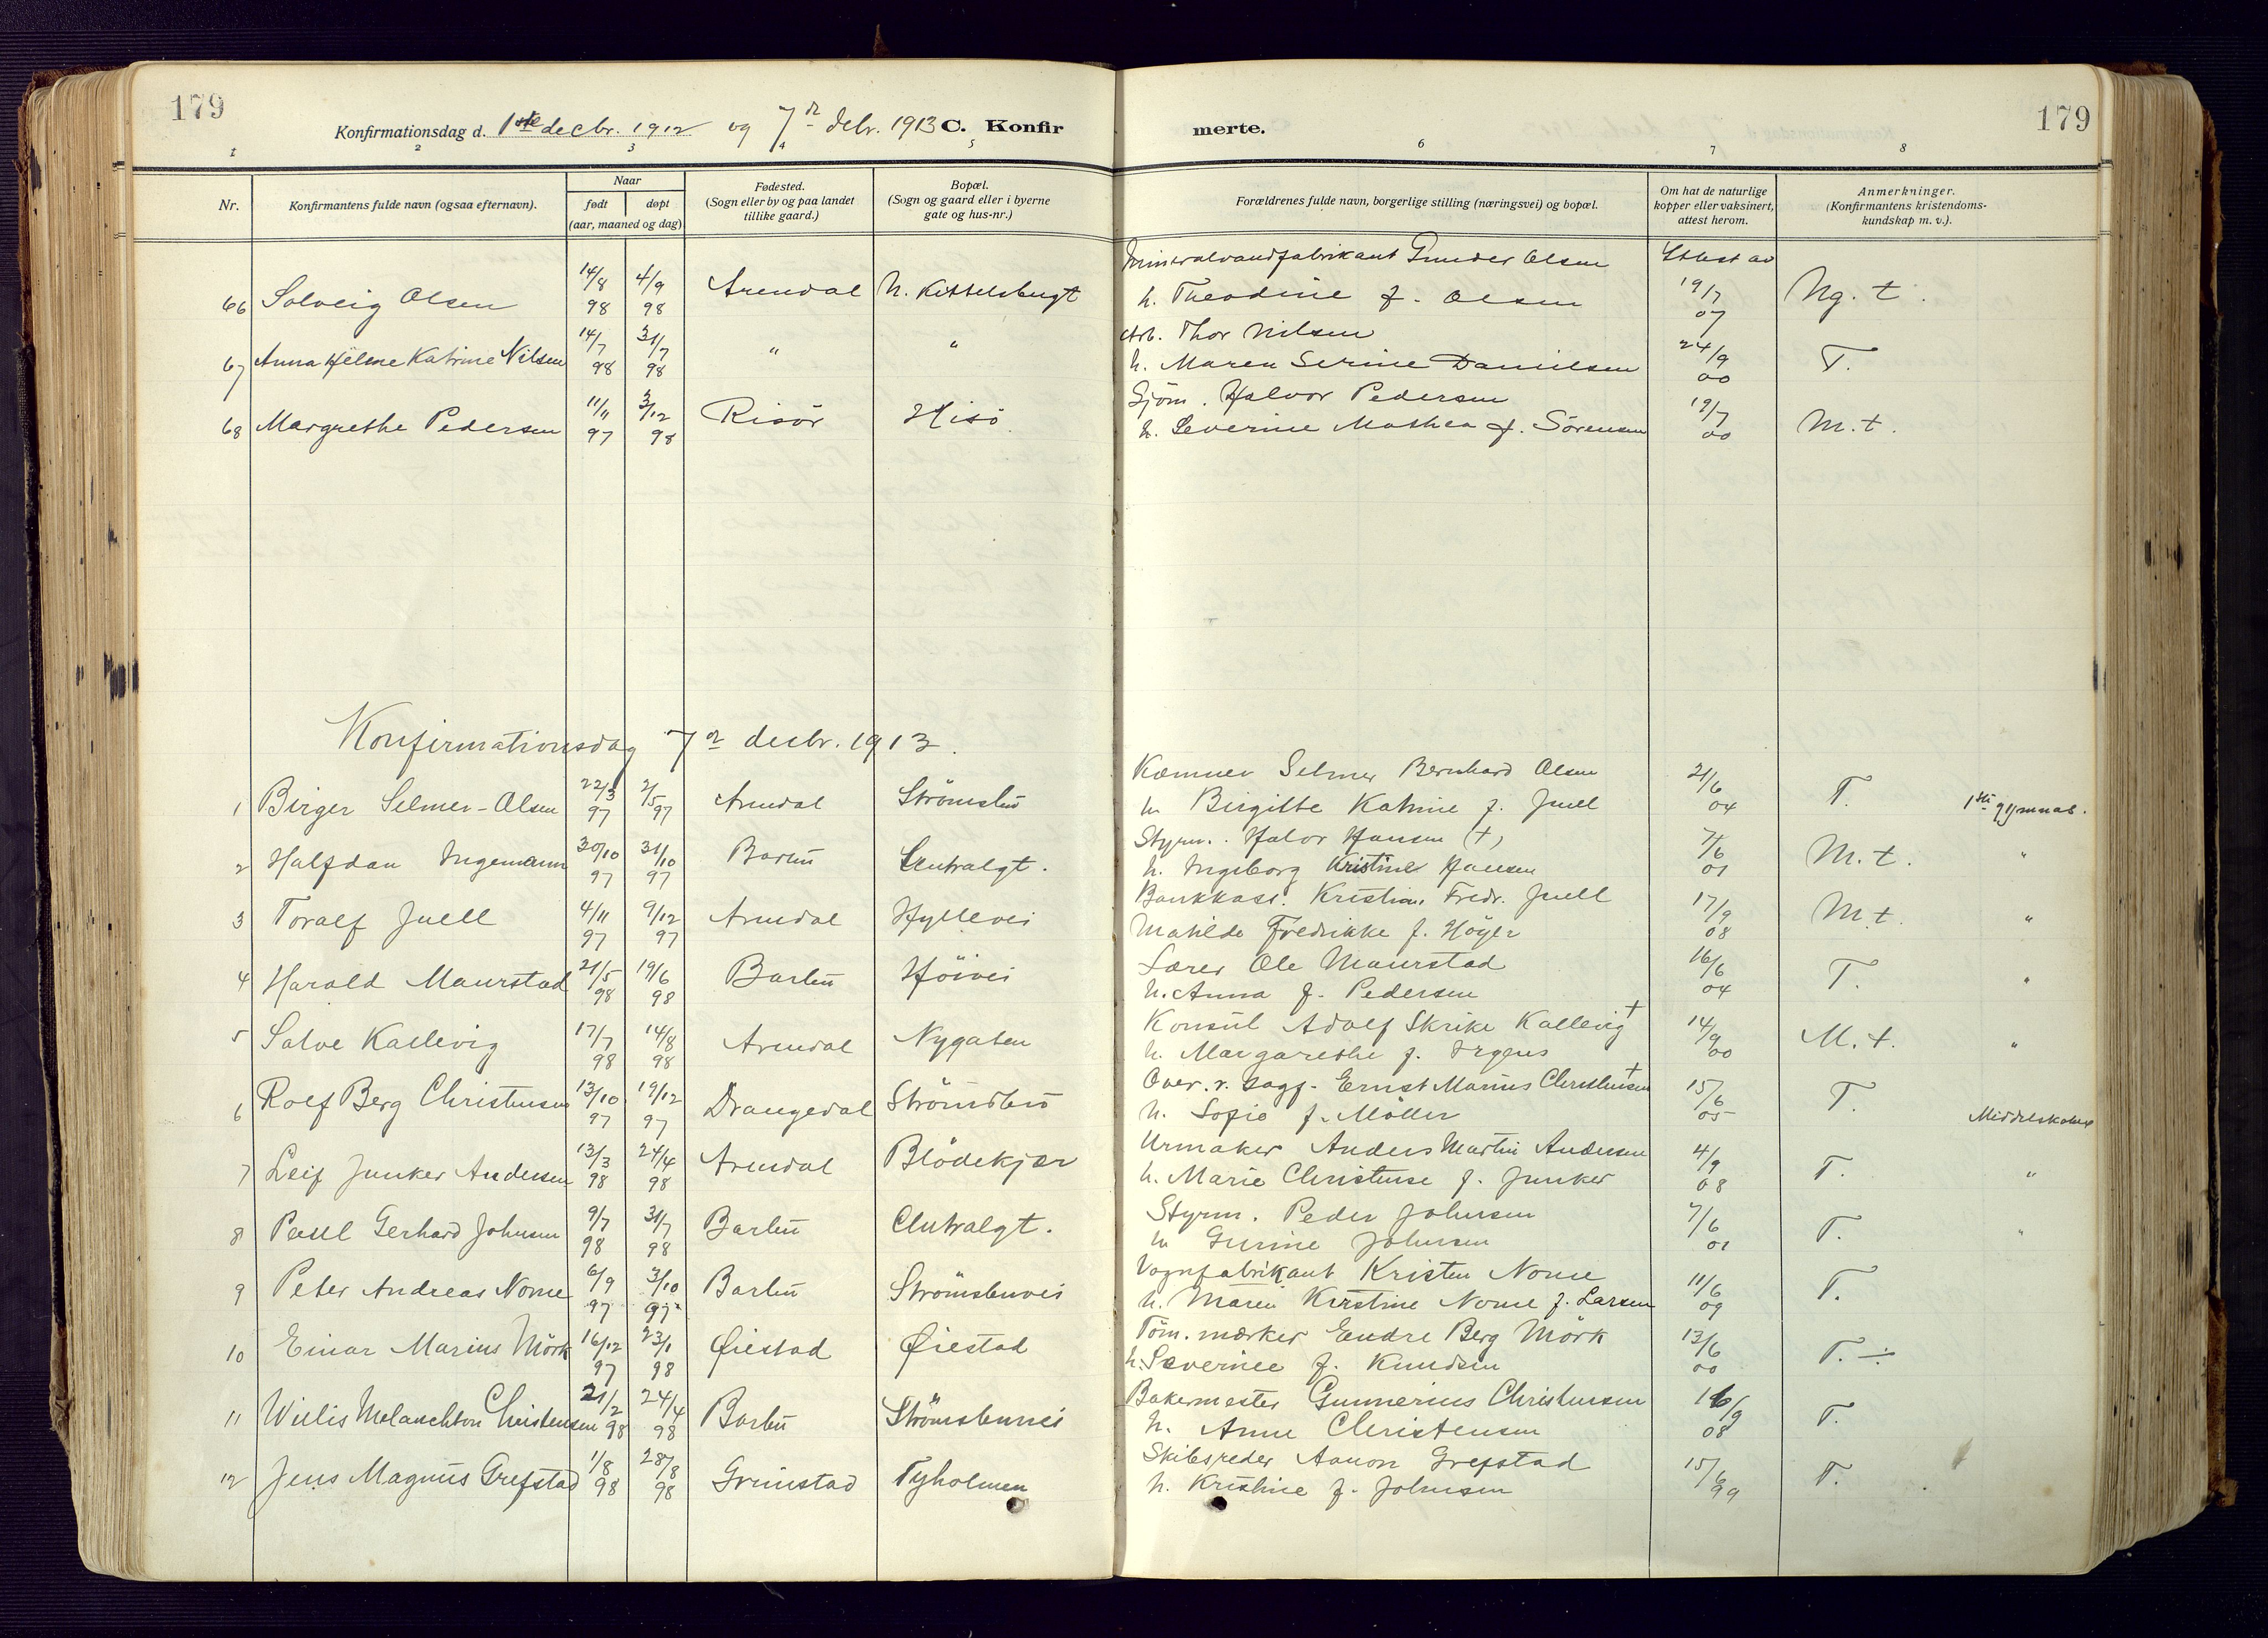 179
Konfirmationsdag d. 1ste decbr. 1912 og 7de debr. 1913 C. Konfir
merte.
179
1 2 3 4 5 6 7 8
Nr.
Konfirmantens fulde navn (ogsaa efternavn).
Naar
født
døpt
(aar, maaned og dag)
Fødested.
(Sogn eller by og paa landet
tillike gaard.)
Bopæl.
(Sogn og gaard eller i byerne
gate og hus-nr.)
Forældrenes fulde navn, borgerlige stilling (næringsvei) og bopæl.
Om hat de naturlige
kopper eller vaksinert,
attest herom.
Anmerkninger.
(Konfirmantens kristendoms-
kundskap m. v.).
Mineralvandfabrikant Gunder Olsen Attest av
66 Solveig Olsen 14/8 98 4/9 98 Arendal N. Kittelsbugt h. Theodine f. Olsen 19/7 07 Ng. t.
Arb. Thor Nilsen
67 Anna Helene Katrine Nilsen 14/7 98 31/7 98 " " h. Maren Serine Danielsen 24/9 00 T.
Sjøm. Halvor Pedersen
68 Margrethe Pedersen 11/11 97 3/12 98 Risör Hisö h. Severine Mathea f. Sörensen 19/7 00 M.t.
Konfirmationsdag 7de decbr. 1913.
Kæmner Selmer Bernhard Olsen
1 Birger Selmer-Olsen 22/3 97 2/5 97 Arendal Strömsbu h. Birgitte Katrine f. Juell 21/6 04 T. 1ste gymnas.
Styrm. Halvor Hansen (†)
2 Halfdan Ingemann 30/10 97 31/10 97 Barbu Sentralgt. h. Ingeborg Kristine Hansen 7/6 01 M.t. "
Bankkass. Kristian Fredr. Juell
3 Toralf Juell 4/11 97 9/12 97 Arendal Hyllevei Matilde Fredrikke f. Höyer 17/9 08 M.t. "
Lærer Ole Maurstad
4 Harald Maurstad 21/5 98 19/6 98 Barbu Höivei h. Anna f. Pedersen 16/6 04 T. "
Konsul Adolf Skrike Kallevig †
5 Salve Kallevig 17/7 98 14/8 98 Arendal Nygaten h. Margarethe f. Irgens 14/9 00 M.t. "
Over.r. sagf. Ernst Marius Christensen †
6 Rolf Berg Christensen 13/10 97 19/12 97 Drangedal Strömsbu h. Sofie f. Möller 15/6 05 T. Middelskolen
Urmaker Anders Martin Andersen
7 Leif Junker Andersen 13/3 98 24/4 98 Arendal Blödekjær h. Marie Christense f. Junker 4/9 08 T. "
Styrm. Peder Johnsen
8 Paul Gerhard Johnsen 9/7 98 31/7 98 Barbu Centralgt. h. Gurine Johnsen 7/6 01 T. "
Vognfabrikant Kristen Nome
9 Peter Andreas Nome 6/9 97 3/10 97 Barbu Strömsbuvei h. Maren Kirstine Nome f. Larsen 11/6 09 T.
Töm. mærker Endre Berg Mörk
10 Einar Marius Mörk 16/12 97 23/1 98 Øiestad Øiestad h. Severine f. Knudsen 13/6 00 T. ÷
Bakermester Gunnerius Christensen
11 Willis Melanchton Christensen 21/2 98 24/4 98 Barbu Strömsbuvei h. Anne Christensen 16/9 08 T.
Skibsreder Aanon Grefstad
12 Jens Magnus Grefstad 1/8 98 28/8 98 Grimstad Tyholmen h. Kristine f. Johnsen 15/6 99 T.